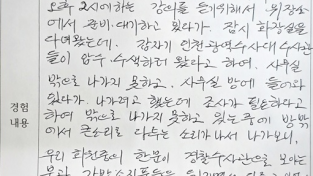 오후 2시에 하는 강의를 듣기위해서 위장소
에서 준비. 대기하고 있다가. 잠시 화장실을
다녀왔는데. 갑자기 인천광역수사대 수사관
들이 압수.수색하러 왔다고 하여. 사무실
밖으로 나가지 못하고. 사무실 방에 들어와
있다가. 나가려고 했는데 조사가 필요하다고
하여 밖으로 나가지 못하고 있는 중에 방밖
에서 큰소리로 다투는 소리가 나서 나가보니.
경험
내용
우리 회원중의 한분이 경찰수사관으로 보이는
분과